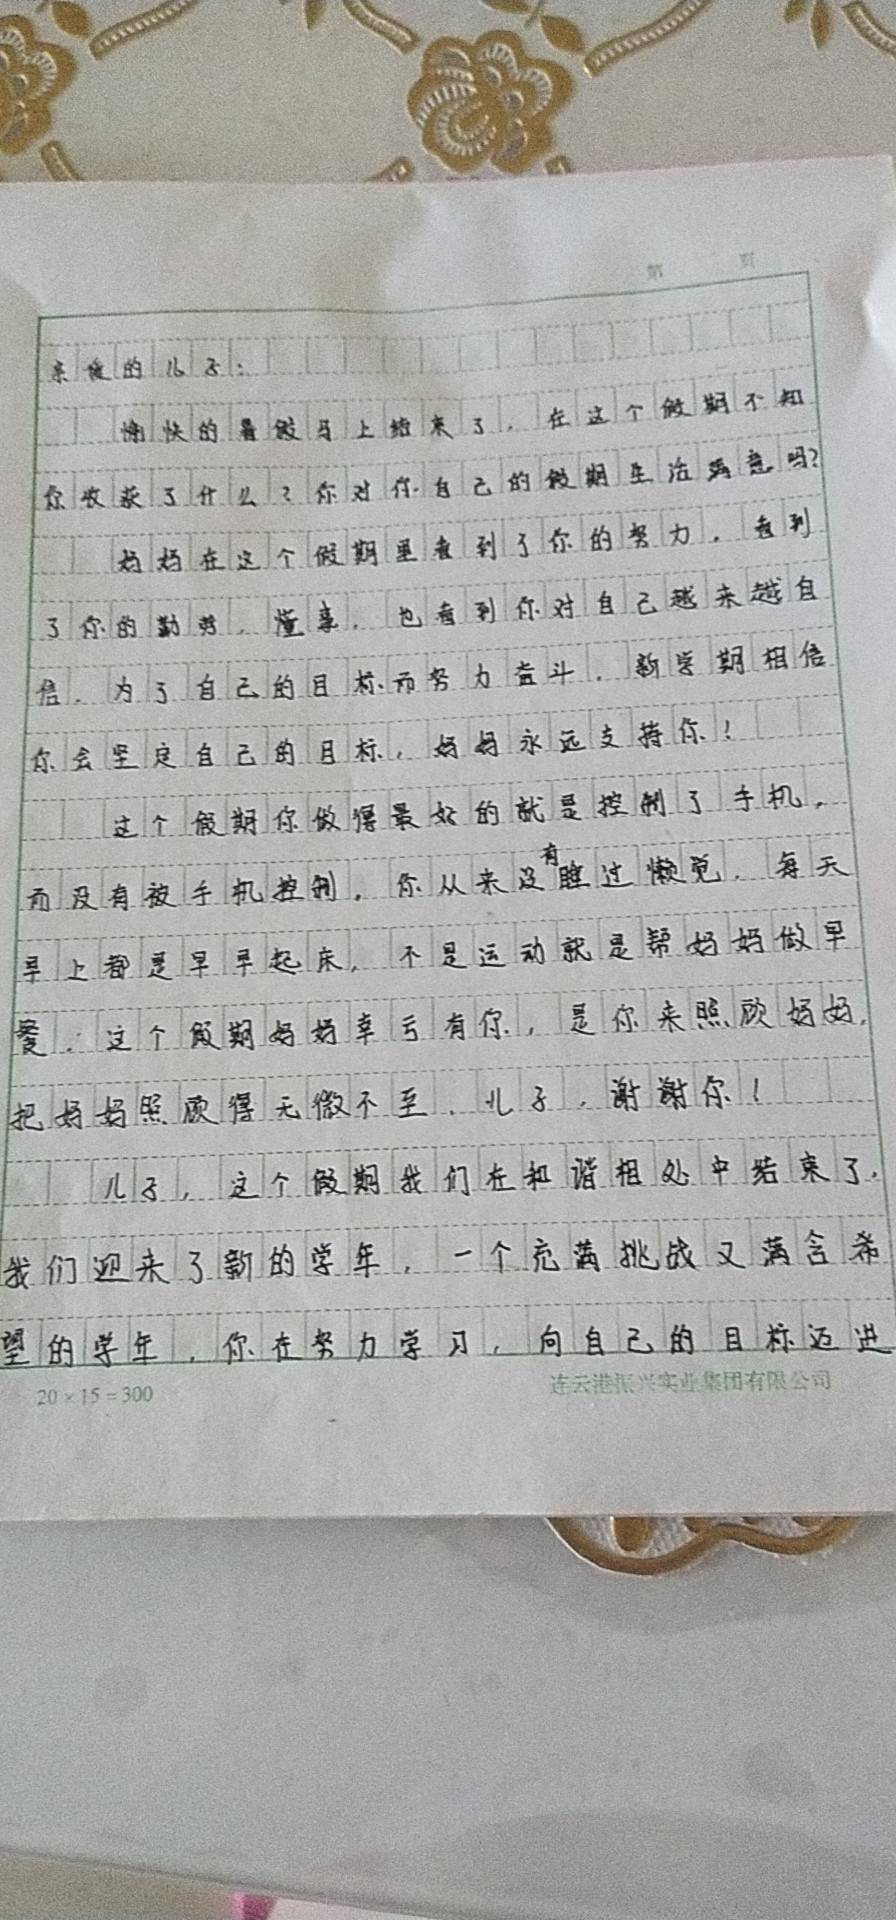 第 页
亲爱的儿子：
愉快的暑假马上结束了，在这个假期不知
你收获了什么？你对你自己的假期生活满意吗？
妈妈在这个假期里看到了你的努力，看到
了你的勤劳、懂事，也看到你对自己越来越自
信，为了自己的目标而努力奋斗，新学期相信
你会坚定自己的目标，妈妈永远支持你！
这个假期你做得最好的就是控制了手机，
而没有被手机控制，你从来没有睡过懒觉，每天
早上都是早早起床，不是运动就是帮妈妈做早
餐，这个假期妈妈幸亏有你，是你来照顾妈妈，
把妈妈照顾得无微不至，儿子，谢谢你！
儿子，这个假期我们在和谐相处中结束了，
我们迎来了新的学年，一个充满挑战又满含希
望的学年，你在努力学习，向自己的目标迈进
20×15=300 连云港振兴实业集团有限公司